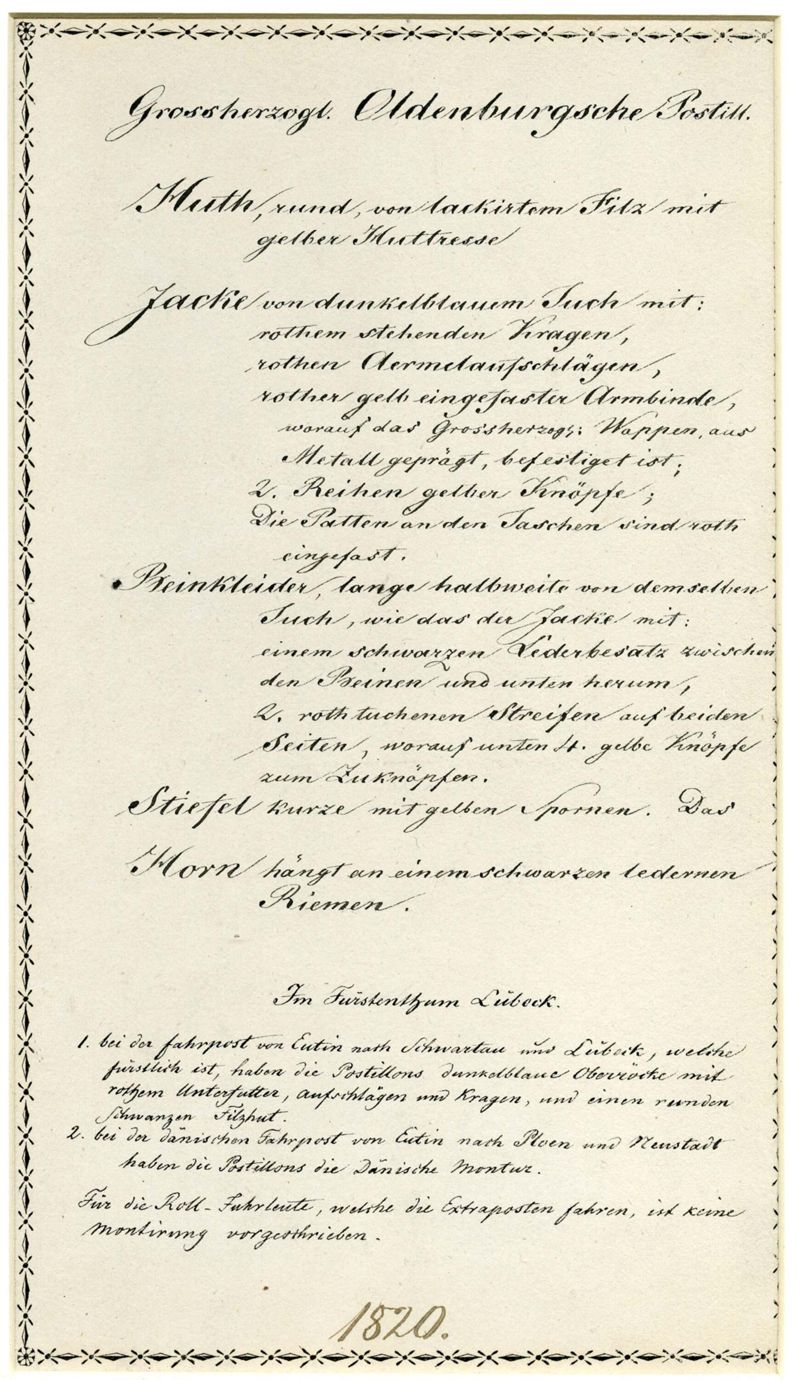 Grossherzogl. Oldenburgsche Postill.
Huth, rund, von lackirtem Filz mit
gelber Huttresse
Jacke von dunkelblauem Tuch mit:
rothem stehenden Kragen,
rothen Aermelaufschlägen,
rother gelb eingefaster Armbinde,
worauf das Grossherzogl: Wappen, aus
Metall geprägt, befestiget ist;
2. Reihen gelber Knöpfe;
Die Patten an den Taschen sind roth
eingefast.
Beinkleider, lange halbweite von demselben
Tuch, wie das der Jacke mit:
einem schwarzen Lederbesatz zwischen
den Beinen und unten herum,
2. roth tuchenen Streifen auf beiden
Seiten, worauf unten 4. gelbe Knöpfe
zum Zuknöpfen.
Stiefel kurze mit gelben Spornen. Das
Horn hängt an einem schwarzen ledernen
Riemen.
Im Fürstenthum Lübeck.
1. bei der fahrpost von Eutin nach Schwartau und Lübeck, welche
fürstlich ist, haben die Postillons dunkelblaue Oberröcke mit
rothem Unterfutter, Aufschlägen und Kragen, und einen runden
Schwarzen Filzhut.
2. bei der dänischen Fahrpost von Eutin nach Ploen und Neustadt
haben die Postillons die Dänische Montur.
Für die Roll-Fuhrleute, welche die Extraposten fahren, ist keine
Montirung vorgeschrieben.
1820.